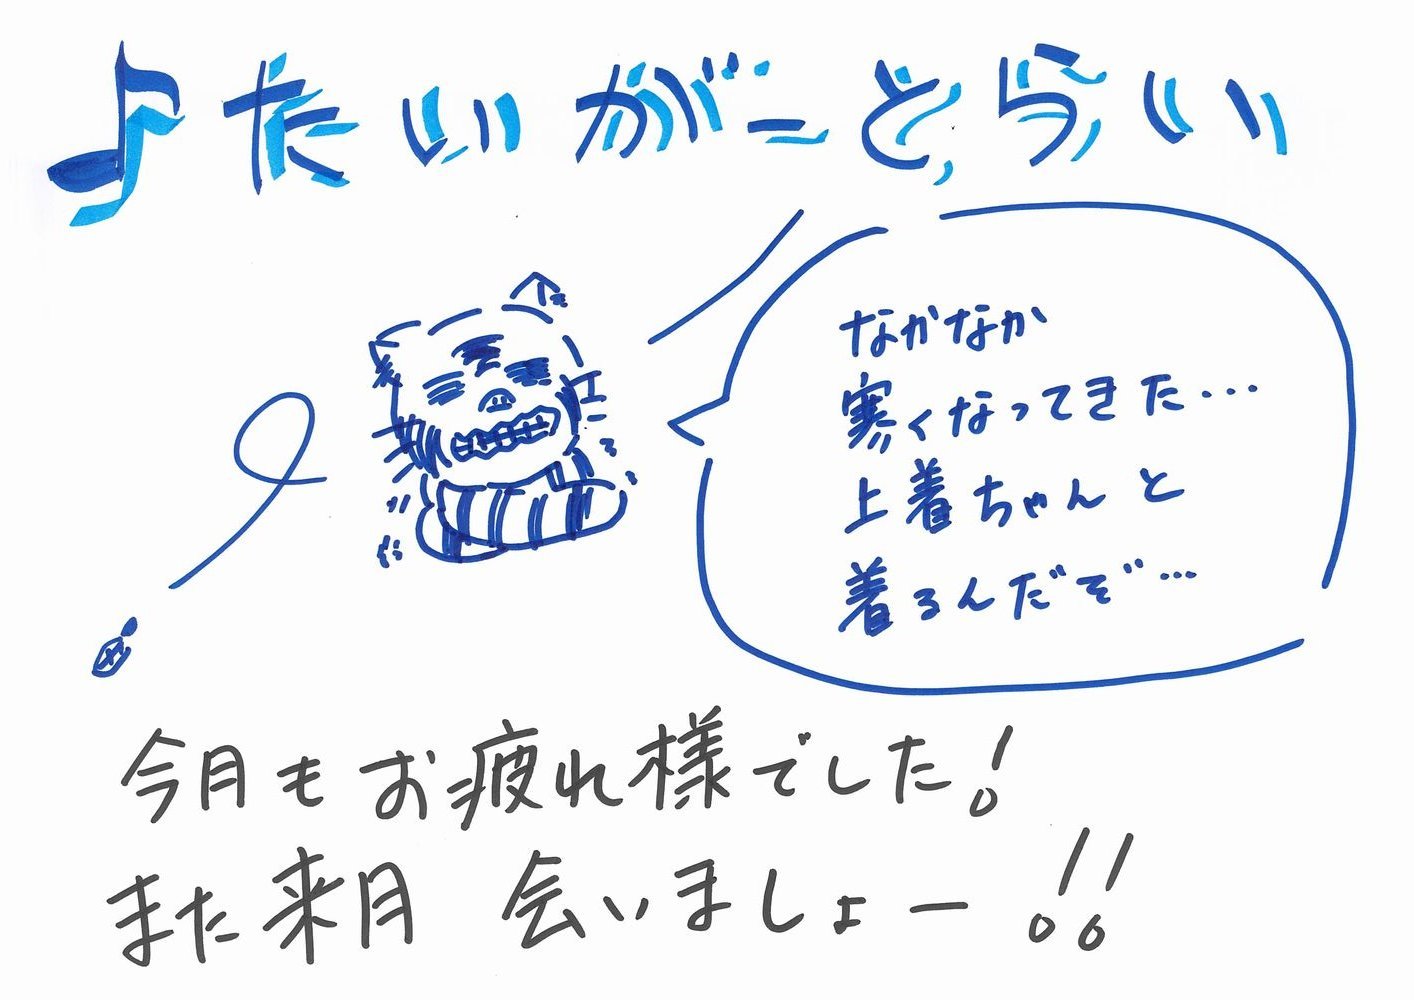 ♪たいがーとらい
なかなか
寒くなってきた…
上着ちゃんと
着るんだぞ…
今月もお疲れ様でした!
また来月 会いましょー!!